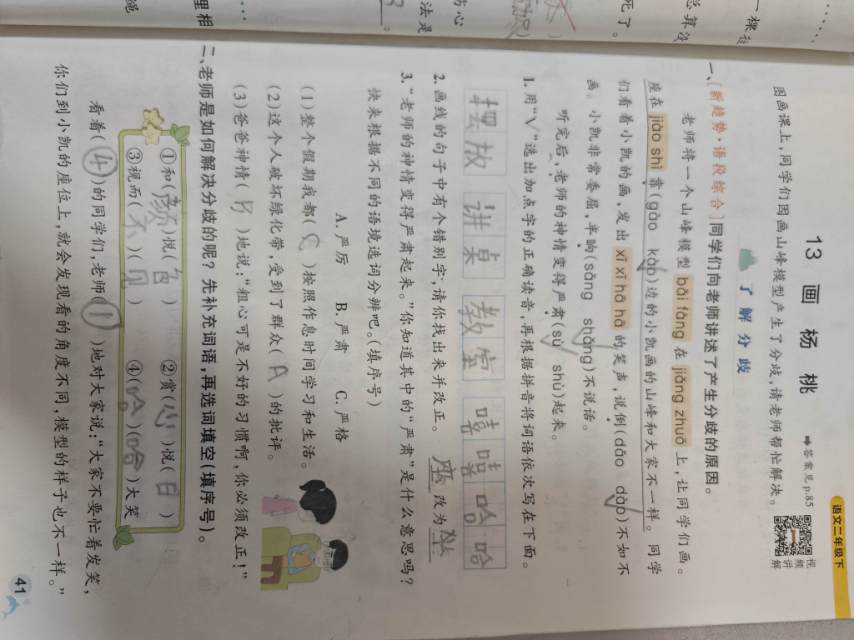 语文二年级下
13 画 杨 桃
➡答案见p.85
视频讲解
图画课上,同学们因画山峰模型产生了分歧,请老师帮忙解决。
了 解 分 歧
一、[新趋势·语段综合]同学们向老师讲述了产生分歧的原因。
老师将一个山峰模型 bǎi fàng 在 jiǎng zhuō 上,让同学们画。
座在 jiào shì 靠(gào kào)边的小凯画的山峰和大家不一样。同学
们看着小凯的画,发出 xī xī hā hā 的笑声,说倒(dǎo dào)不如不
画。小凯非常委屈,半晌(sǎng shǎng)不说话。
听完后,老师的神情变得严肃(sù shù)起来。
1. 用“√”选出加点字的正确读音,再根据拼音将词语依次写在下面。
摆放 讲桌 教室 嘻嘻哈哈
2. 画线的句子中有个错别字,请你找出来并改正。 座 改为 坐
3. “老师的神情变得严肃起来。”你知道其中的“严肃”是什么意思吗?
快来根据不同的语境选词分辨吧。(填序号)
A. 严厉 B. 严肃 C. 严格
(1)整个假期我都( C )按照作息时间学习和生活。
(2)这个人破坏绿化带,受到了群众( A )的批评。
(3)爸爸神情( B )地说:“粗心可是不好的习惯啊,你必须改正!”
二、老师是如何解决分歧的呢?先补充词语,再选词填空(填序号)。
①和(颜)悦(色) ②赏(心)悦(目)
③视而(不)(见) ④(哈)(哈)大笑
看着( 4 )的同学们,老师( 1 )地对大家说:“大家不要忙着发笑,
你们到小凯的座位上,就会发现看的角度不同,模型的样子也不一样。”
41
一棵
死了。
法是
里相